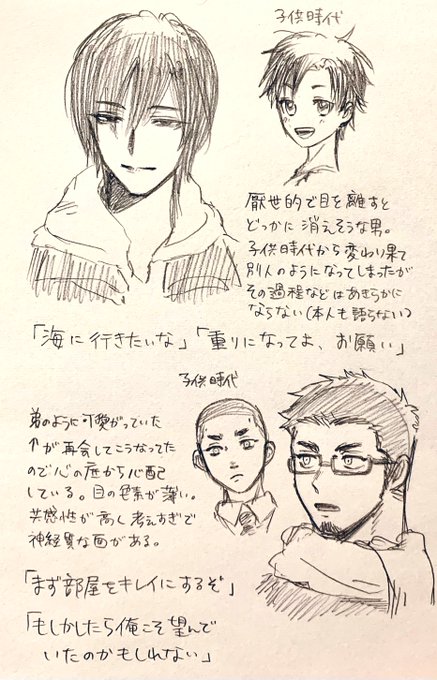 子供時代
厭世的で目を離すと
どっかに消えそうな男。
子供時代から変わり果て
別人のようになってしまったが
その過程などはあきらかに
ならない(本人も語らない)
「海に行きたいな」「重りになってよ、お願い」
子供時代
弟のように可愛がっていた
↑が再会してこうなってた
ので心の底から心配
している。目の色素が薄い。
共感性が高く考えすぎで
神経質な面がある。
「まず部屋をキレイにするぞ」
「もしかしたら俺こそ望んで
いたのかもしれない」